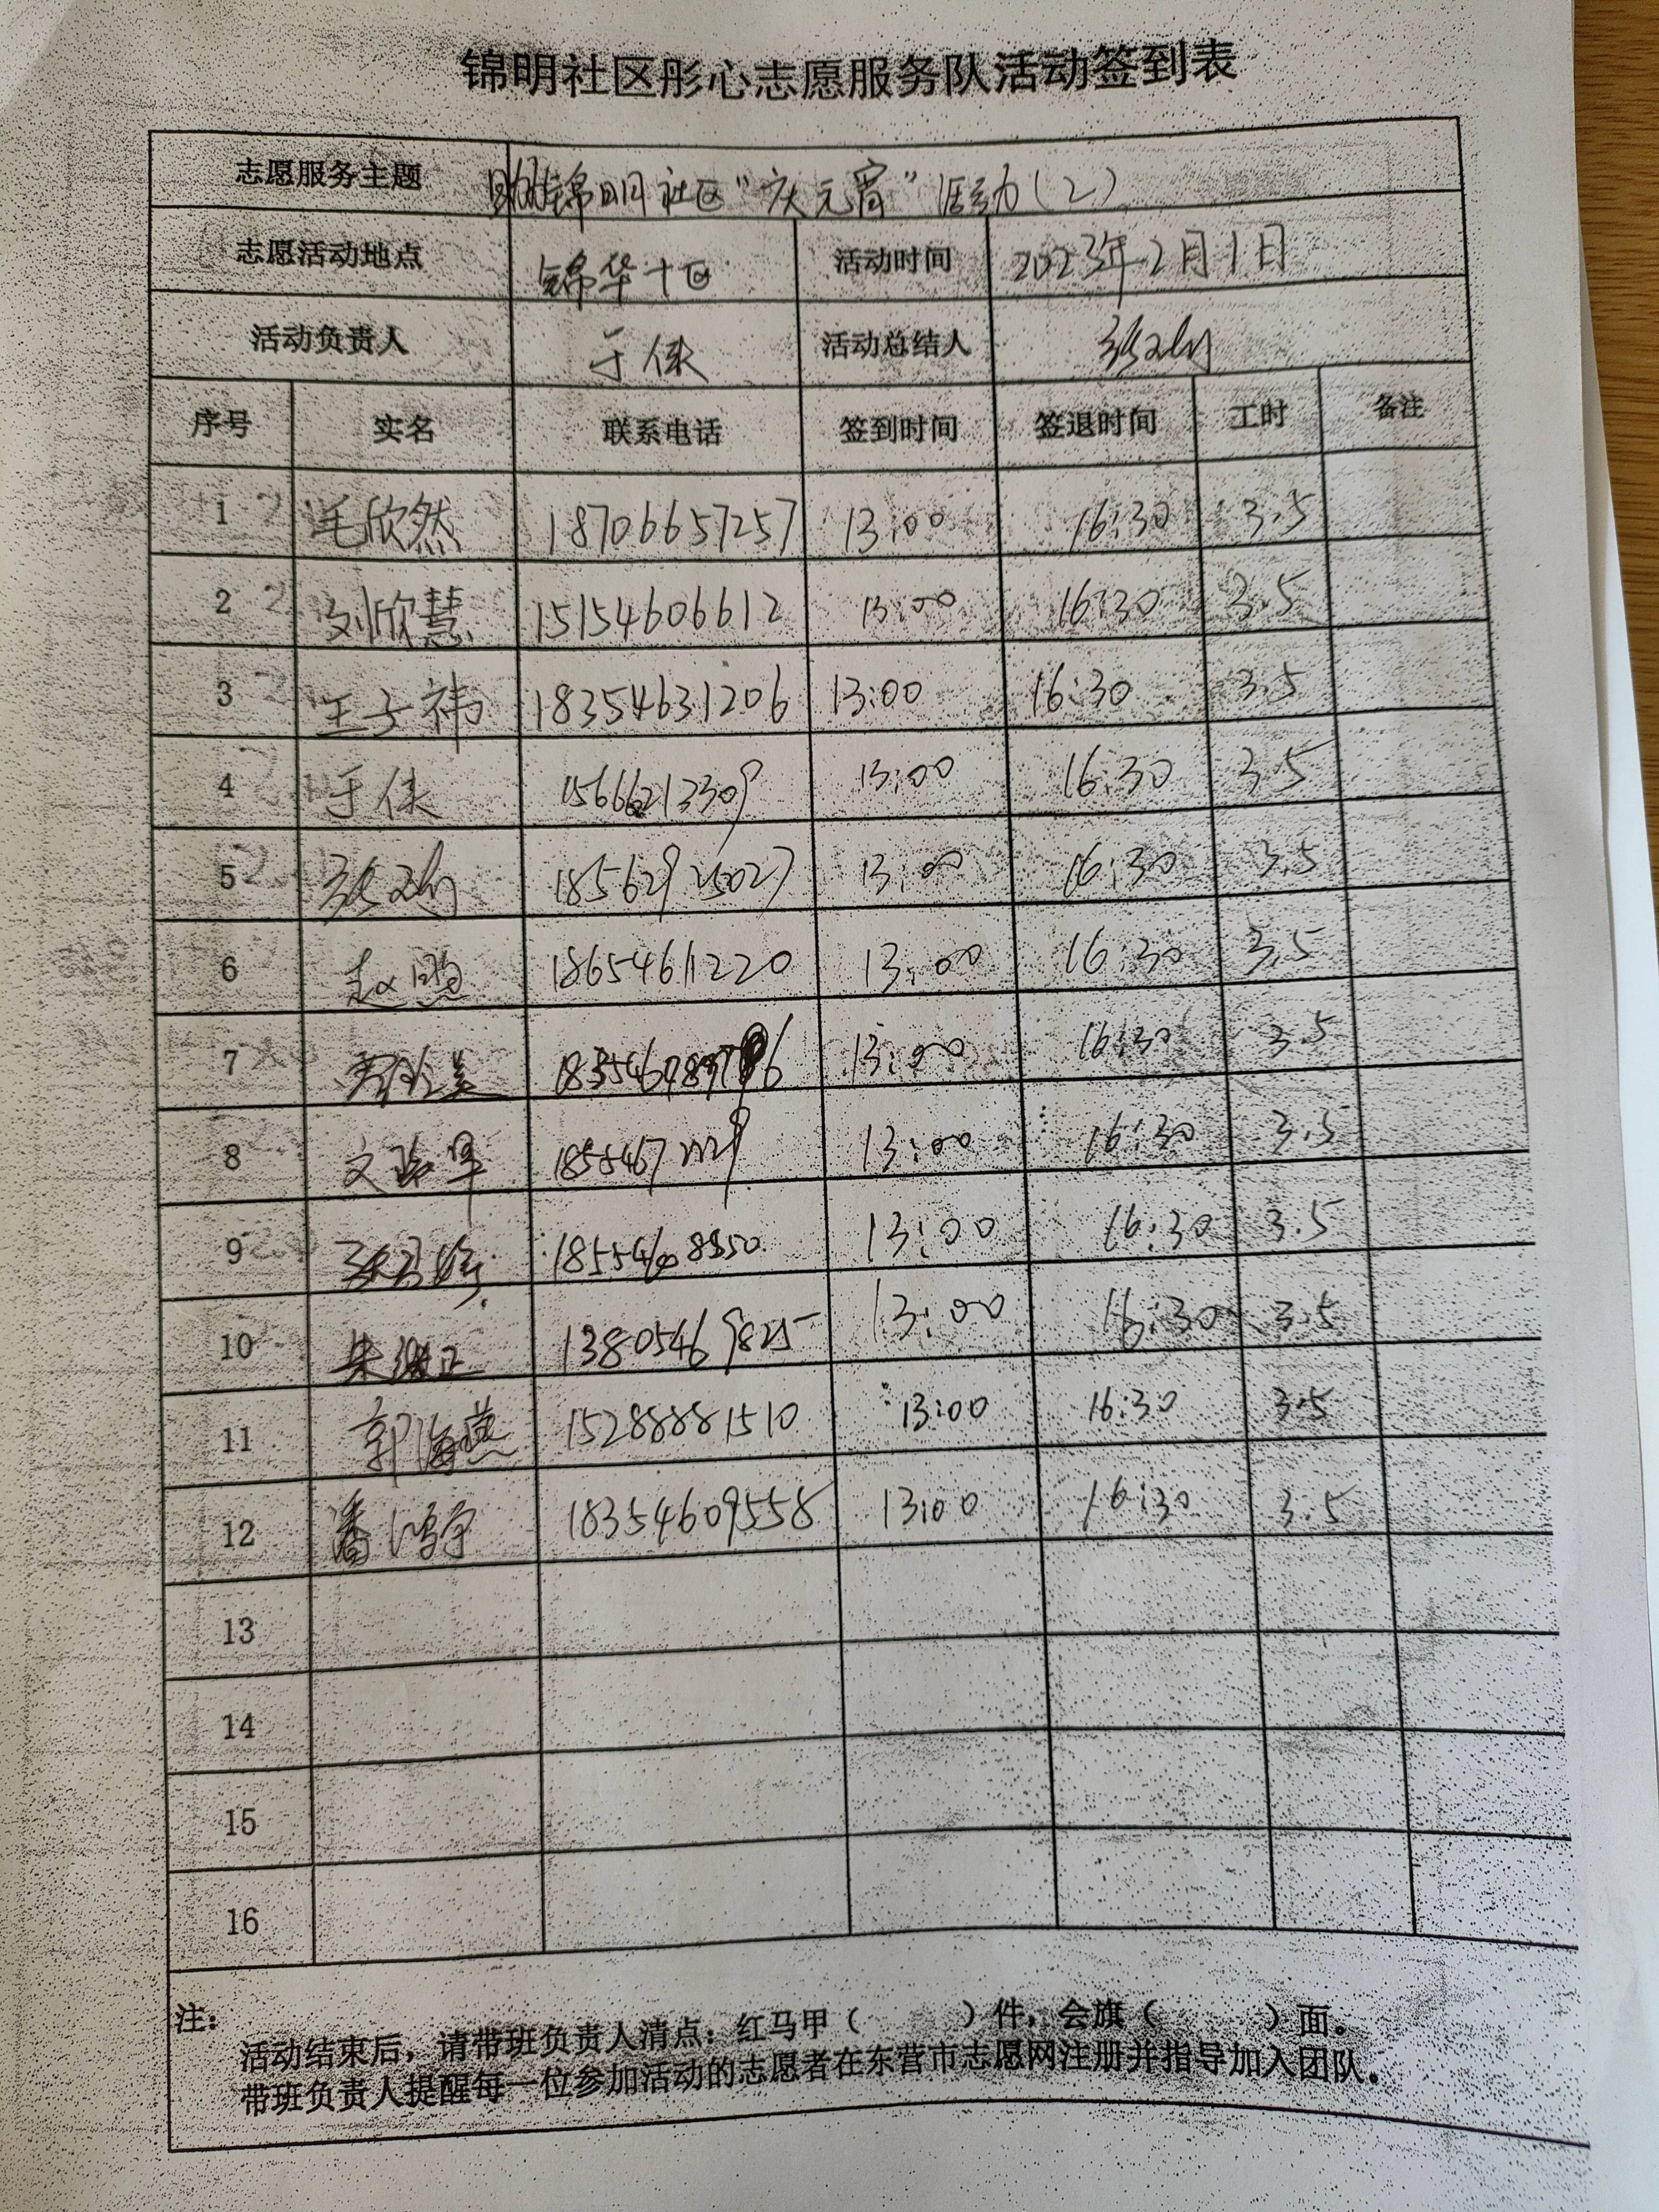 锦明社区彤心志愿服务队活动签到表
志愿服务主题 助力锦明社区“庆元宵”活动(2)
志愿活动地点 锦华十区 活动时间 2023年2月1日
活动负责人 于侠 活动总结人
序号 实名 联系电话 签到时间 签退时间 工时 备注
1 毛欣然 18706657257 13:00 16:30 3.5
2 刘欣慧 15154606612 13:00 16:30 3.5
3 王子祎 18354631206 13:00 16:30 3.5
4 于侠 15666213309 13:00 16:30 3.5
5 18562925027 13:00 16:30 3.5
6 18654611220 13:00 16:30 3.5
7 13:00 16:30 3.5
8 13:00 16:30 3.5
9 13:00 16:30 3.5
10 13805469825 13:00 16:30 3.5
11 郭海燕 15288881510 13:00 16:30 3.5
12 潘鸿宇 18354609558 13:00 16:30 3.5
13
14
15
16
注:
活动结束后，请带班负责人清点：红马甲（ ）件，会旗（ ）面。
带班负责人提醒每一位参加活动的志愿者在东营市志愿网注册并指导加入团队。